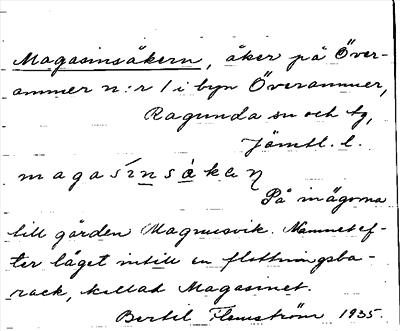 Magasinsåkern, åker på Över-
ammer n:r 1 i byn Överammer,
Ragunda sn och tg,
Jämtl. l.
magasínsàkeṇ
På inägorna
till gården Magnusvik. Namnet ef-
ter läget intill en flottningsba-
rack, kallad Magasinet.
Bertil Flemström 1935.